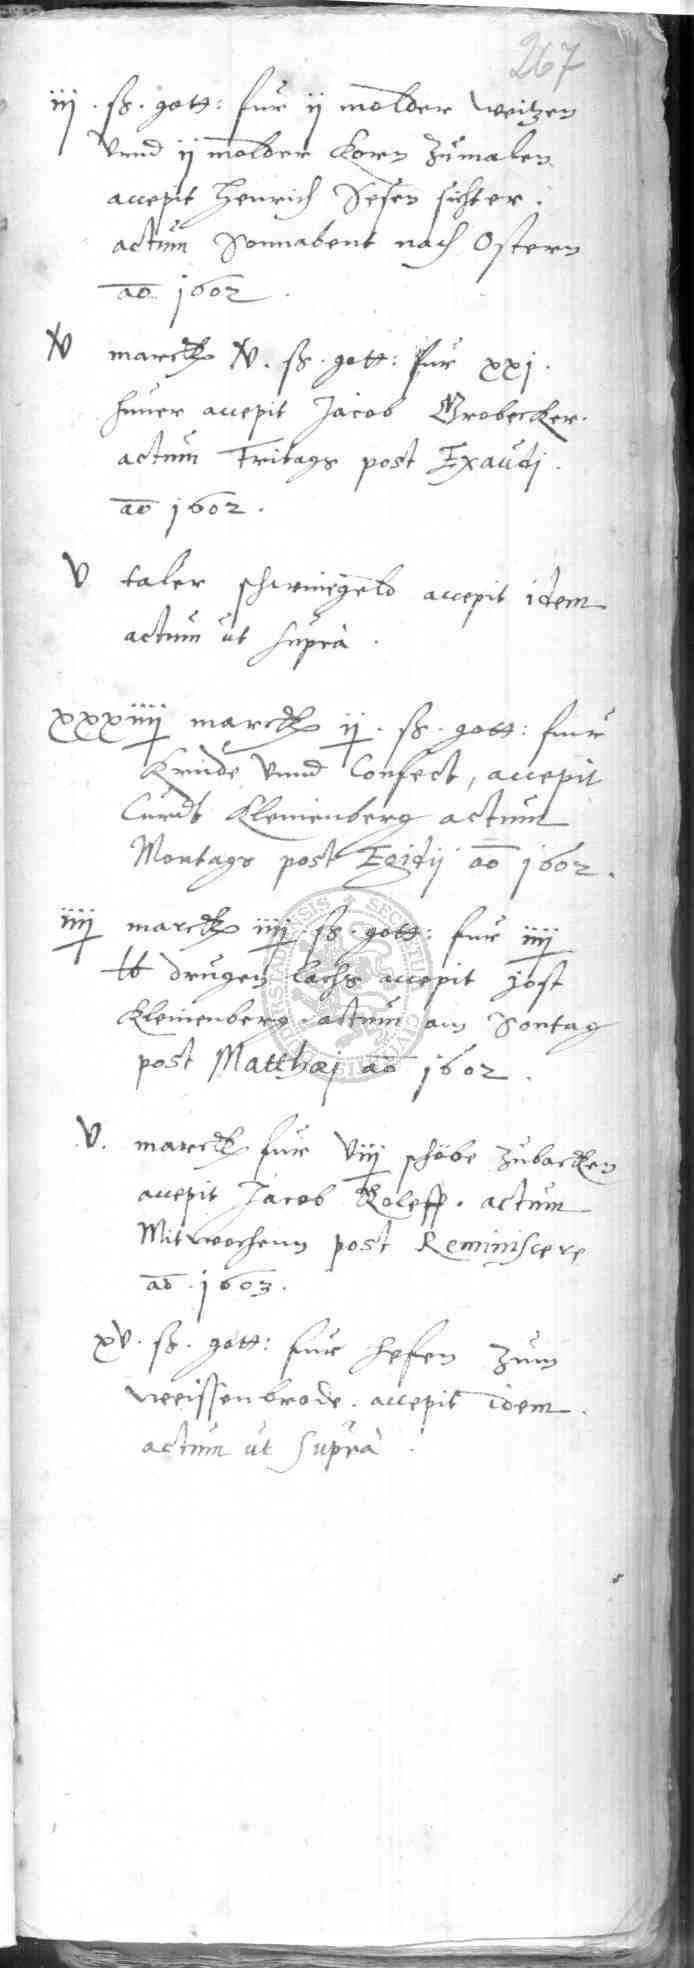 267
iij . ß . gott: fur ij molder weitzen
vnnd ij molder korn zumalen
accepit Henrich Sesen sichter .
actum Sonnabent nach Ostern
ao 1602 .
marck . ß . gott: fur xxj .
huner accepit Jacob Grobecker .
actum Fritags post Exaudi .
ao 1602 .
V taler schwinegeld accepit idem
actum ut supra .
xxxiiij marck ij . ß . gott: fur
krude vnnd Confect, accepit
Curdt Kleinenberg actum
Montags post Egidij ao 1602 .
iiij marck iiij . ß . gott: fur iiij
lb drugen lachs accepit Jost
Kleinenberg . actum am Sontag
post Matthæi ao 1602 .
V . marck fur viij schöbe zubacken
accepit Jacob Roleff . actum
Mitwochenn post Reminiscere
ao . 1603 .
xv . ß . gott: fur hefen zum
weissenbrode . accepit idem .
actum ut supra .